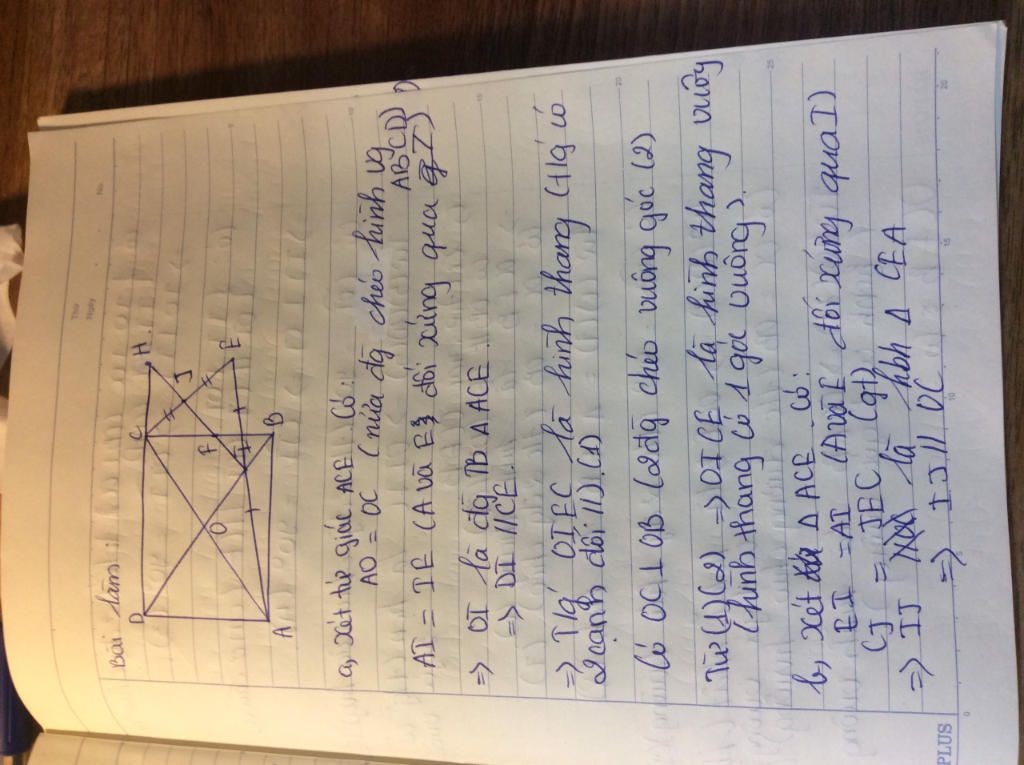 Thứ
Ngày
No.
Bài làm:
D C H
O F J
I E
A B
a, xét tứ giác ACE Có:
AO = OC (nửa đg chéo hình vg ABCD)
AI = IE (A và E đối xứng qua I)
=> OI là đg TB △ ACE.
=> OI // CE.
=> Tứ OIEC là hình thang (Tứ có
2 cạnh đối //).(1)
Có OC ⊥ OB (2 đg chéo vuông góc (2)
Từ (1)(2) => OICE là hình thang vuông
(hình thang có 1 góc vuông).
b, xét △ ACE Có:
EI = AI (A và E đối xứng qua I)
CJ = JEC (gt)
=> IJ là hbh △ CEA
=> IJ // OC
0 10 15 20
5 10 15 20 25
PLUS